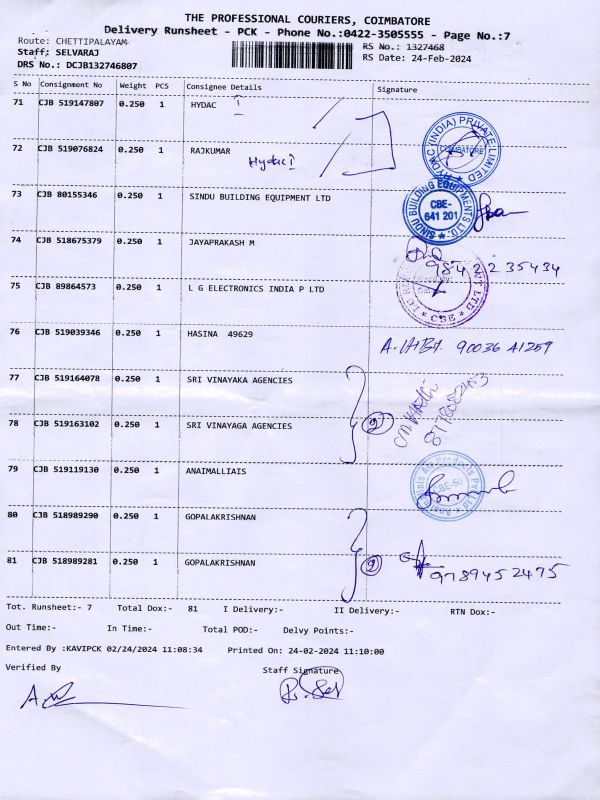 THE PROFESSIONAL COURIERS, COIMBATORE
Delivery Runsheet - PCK - Phone No.:0422-3505555 - Page No.:7
Route: CHETTIPALAYAM
RS No.: 1327468
Staff: SELVARAJ
RS Date: 24-Feb-2024
DRS No.: DCJB132746807
S No Consignment No Weight PCS Consignee Details Signature
71 CJB 519147807 0.250 1 HYDAC
72 CJB 519076824 0.250 1 RAJKUMAR
Hydac
HYDAC (INDIA) PRIVATE LIMITED
COIMBATORE
73 CJB 80155346 0.250 1 SINDU BUILDING EQUIPMENT LTD
SINDU BUILDING EQUIPMENTS LTD.
CBE-
641 201
74 CJB 518675379 0.250 1 JAYAPRAKASH M
98422 35434
75 CJB 89864573 0.250 1 L G ELECTRONICS INDIA P LTD
CSE
76 CJB 519039346 0.250 1 HASINA 49629
90036 41259
77 CJB 519164078 0.250 1 SRI VINAYAKA AGENCIES
78 CJB 519163102 0.250 1 SRI VINAYAGA AGENCIES
2
79 CJB 519119130 0.250 1 ANAIMALLIAIS
80 CJB 518989290 0.250 1 GOPALAKRISHNAN
81 CJB 518989281 0.250 1 GOPALAKRISHNAN
2
9789452475
Tot. Runsheet:- 7 Total Dox:- 81 I Delivery:- II Delivery:- RTN Dox:-
Out Time:- In Time:- Total POD:- Delvy Points:-
Entered By :KAVIPCK 02/24/2024 11:08:34 Printed On: 24-02-2024 11:10:00
Verified By Staff Signature